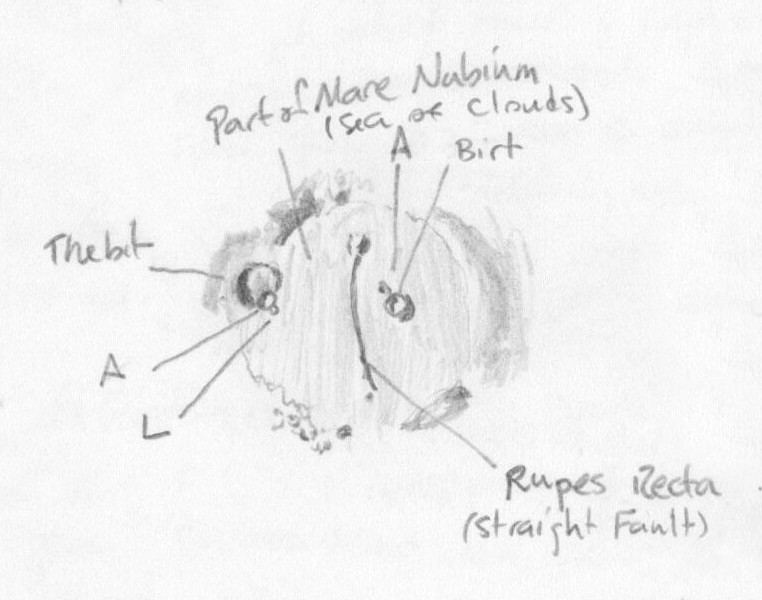 Part of Mare Nubium
(sea of clouds)
A
Birt
Thebit
A
L
Rupes Recta
(straight Fault)